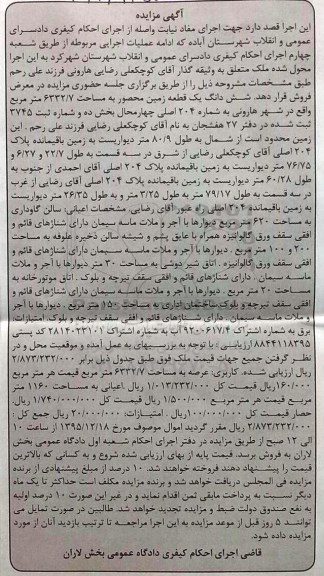 آگهی مزایده
این اجرا قصد دارد جهت اجرای مفاد نیابت واصله از اجرای احکام کیفری دادسرای
عمومی و انقلاب شهرستان آباده که ادامه عملیات اجرایی مربوطه از طریق شعبه
چهارم اجرای احکام کیفری دادسرای عمومی و انقلاب شهرستان شهرکرد به این اجرا
محول شده ملک متعلق به وثیقه گذار آقای کوچکعلی رضایی هارونی فرزند علی رحم
طبق مشخصات مشروحه ذیل را از طریق برگزاری جلسه حضوری مزایده در معرض
فروش قرار دهد. شش دانگ یک قطعه زمین محصور به مساحت ۶۳۳۲/۷ متر مربع
واقع در شهر هارونی به شماره ۲۰۴ اصلی چهارمحال بخش ده و شماره ثبت ۳۷۴۵
ثبت شده در دفتر ۲۷ هفشجان به نام آقای کوچکعلی رضایی فرزند علی رحم . این
زمین محدود است از شمال به طول ۸۰/۹ متر دیواریست به زمین باقیمانده پلاک
۲۰۴ اصلی آقای کوچکعلی رضایی از شرق در سه قسمت به طول ۲۲/۷ و ۶/۲۷ و
۷۶/۷۵ متر دیواریست به زمین باقیمانده پلاک ۲۰۴ اصلی آقای احمدی از جنوب به
طول ۶۰/۲۸ متر دیواریست به زمین باقیمانده پلاک ۲۰۴ اصلی آقای رضایی از غرب
در سه قسمت به طول ۷۹/۱۷ متر به طول ۳/۲۵ متر و به طول ۲۶/۳۵ متر دیواریست
به زمین باقیمانده ۲۰۴ اصلی راه عبور آقای رضایی. مشخصات اعیانی: سالن گاوداری
به مساحت ۶۲۰ متر مربع دیوارها با آجر و ملات ماسه سیمان دارای شناژهای قائم و
افقی سقف ورق گالوانیزه همراه با عایق پشم و شیشه سالن ذخیره علوفه به مساحت
۲۰۰ و ۱۰۰ متر مربع . دیوارها با آجر و ملات ماسه سیمان دارای شناژهای قائم و افقی
سقف ورق گالوانیزه . اتاق شیر دوشی به مساحت ۳۰ متر دیوارها با آجر و ملات
ماسه سیمان . دارای شناژهای قائم و افقی سقف تیرچه و بلوک . اتاق موتورخانه به
مساحت ۲۰ متر مربع . دیوارها با آجر و ملات ماسه سیمان دارای شناژهای قائم و
افقی سقف تیرچه و بلوک ساختمان اداری به مساحت ۱۵۰ متر مربع . دیوارها با آجر
و ملات ماسه سیمان . دارای شناژهای قائم و افقی سقف تیرچه و بلوک. امتیازات:
برق به شماره اشتراک ۹۲۰۰۶۱۷/۴ آب به شماره اشتراک ۲۸۱۴۰۲۳۱۰۱ کد پستی
۸۸۴۴۱۱۸۳۹۵ ارزیابی : با توجه به بررسیهای به عمل آمده و موقعیت محل و در
نظر گرفتن جمیع جهات قیمت ملک فوق طبق جدول ذیل برابر ۲/۸۷۳/۲۳۲/۰۰۰
ریال ارزیابی شده. کاربری: عرصه به مساحت ۶۳۳۲/۷ متر مربع قیمت هر متر مربع
۱۶۰/۰۰۰ریال قیمت کل ۱/۰۱۳/۲۳۲/۰۰۰ ریال اعیانی به مساحت ۱۱۶۰ متر
مربع قیمت هر متر مربع ۱/۵۰۰/۰۰۰ ریال قیمت کل ۱/۷۴۰/۰۰۰/۰۰۰ ریال.
حصار قیمت کل ۱۰۰/۰۰۰/۰۰۰ ریال . امتیازات: ۲۰/۰۰۰/۰۰۰ ریال جمع کل :
۲/۸۷۳/۲۳۲/۰۰۰ ریال مقرر گردید اموال موصوف مورخ ۱۳۹۵/۱۲/۱۸ از ساعت ۱۰
الی ۱۲ صبح از طریق مزایده در دفتر اجرای احکام شعبه اول دادگاه عمومی بخش
لاران به فروش برسد. قیمت پایه از بهای ارزیابی شده شروع و به کسانی که بالاترین
قیمت را پیشنهاد دهند فروخته خواهند شد. ۱۰ درصد از مبلغ پیشنهادی از برنده
مزایده فی المجلس دریافت خواهد شد و برنده مزایده مکلف است حداکثر تا یک ماه
دیگر نسبت به پرداخت مابقی ثمن اقدام نماید و در غیر این صورت ۱۰ درصد اولیه
به نفع صندوق دولت ضبط و مزایده تجدید خواهد شد. طالبین در صورت تمایل می
توانند ۵ روز قبل از موعد مزایده به این اجرا مراجعه تا ترتیب بازدید آنان از مورد
مزایده داده شود.
قاضی اجرای احکام کیفری دادگاه عمومی بخش لاران